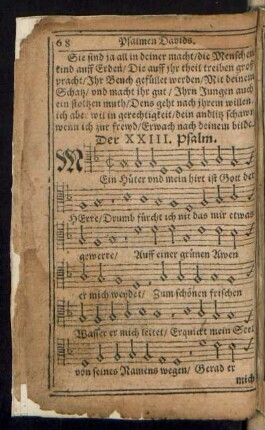 68 Psalmen Davids.
Sie sind ja all in deiner macht/ die Menschen
kind auff Erden/ Die auff jhr theil treiben groß
pracht/ Ihr Bauch gefüllet werden/ Mit deinem
Schatz/ und macht jhr gut/ Ihrn Jungen auch
ein stoltzen muth/ Dens geht nach jhrem willen.
ich aber wil in gerechtigkeit/ dein andlitz schawn
wenn ich zur frewd/ Erwach nach deinem bilde.
Der XXIII. Psalm.
M
Ein Hüter und mein hirt ist Gott der
HErre/ Drumb fürcht ich nit das mir etwas
gewerre/ Auff einer grünen Awen
er mich weydet/ Zum schönen frischen
Wasser er mich leitet/ Erquickt mein Seel
von seines Namens wegen/ Gerad er
mich